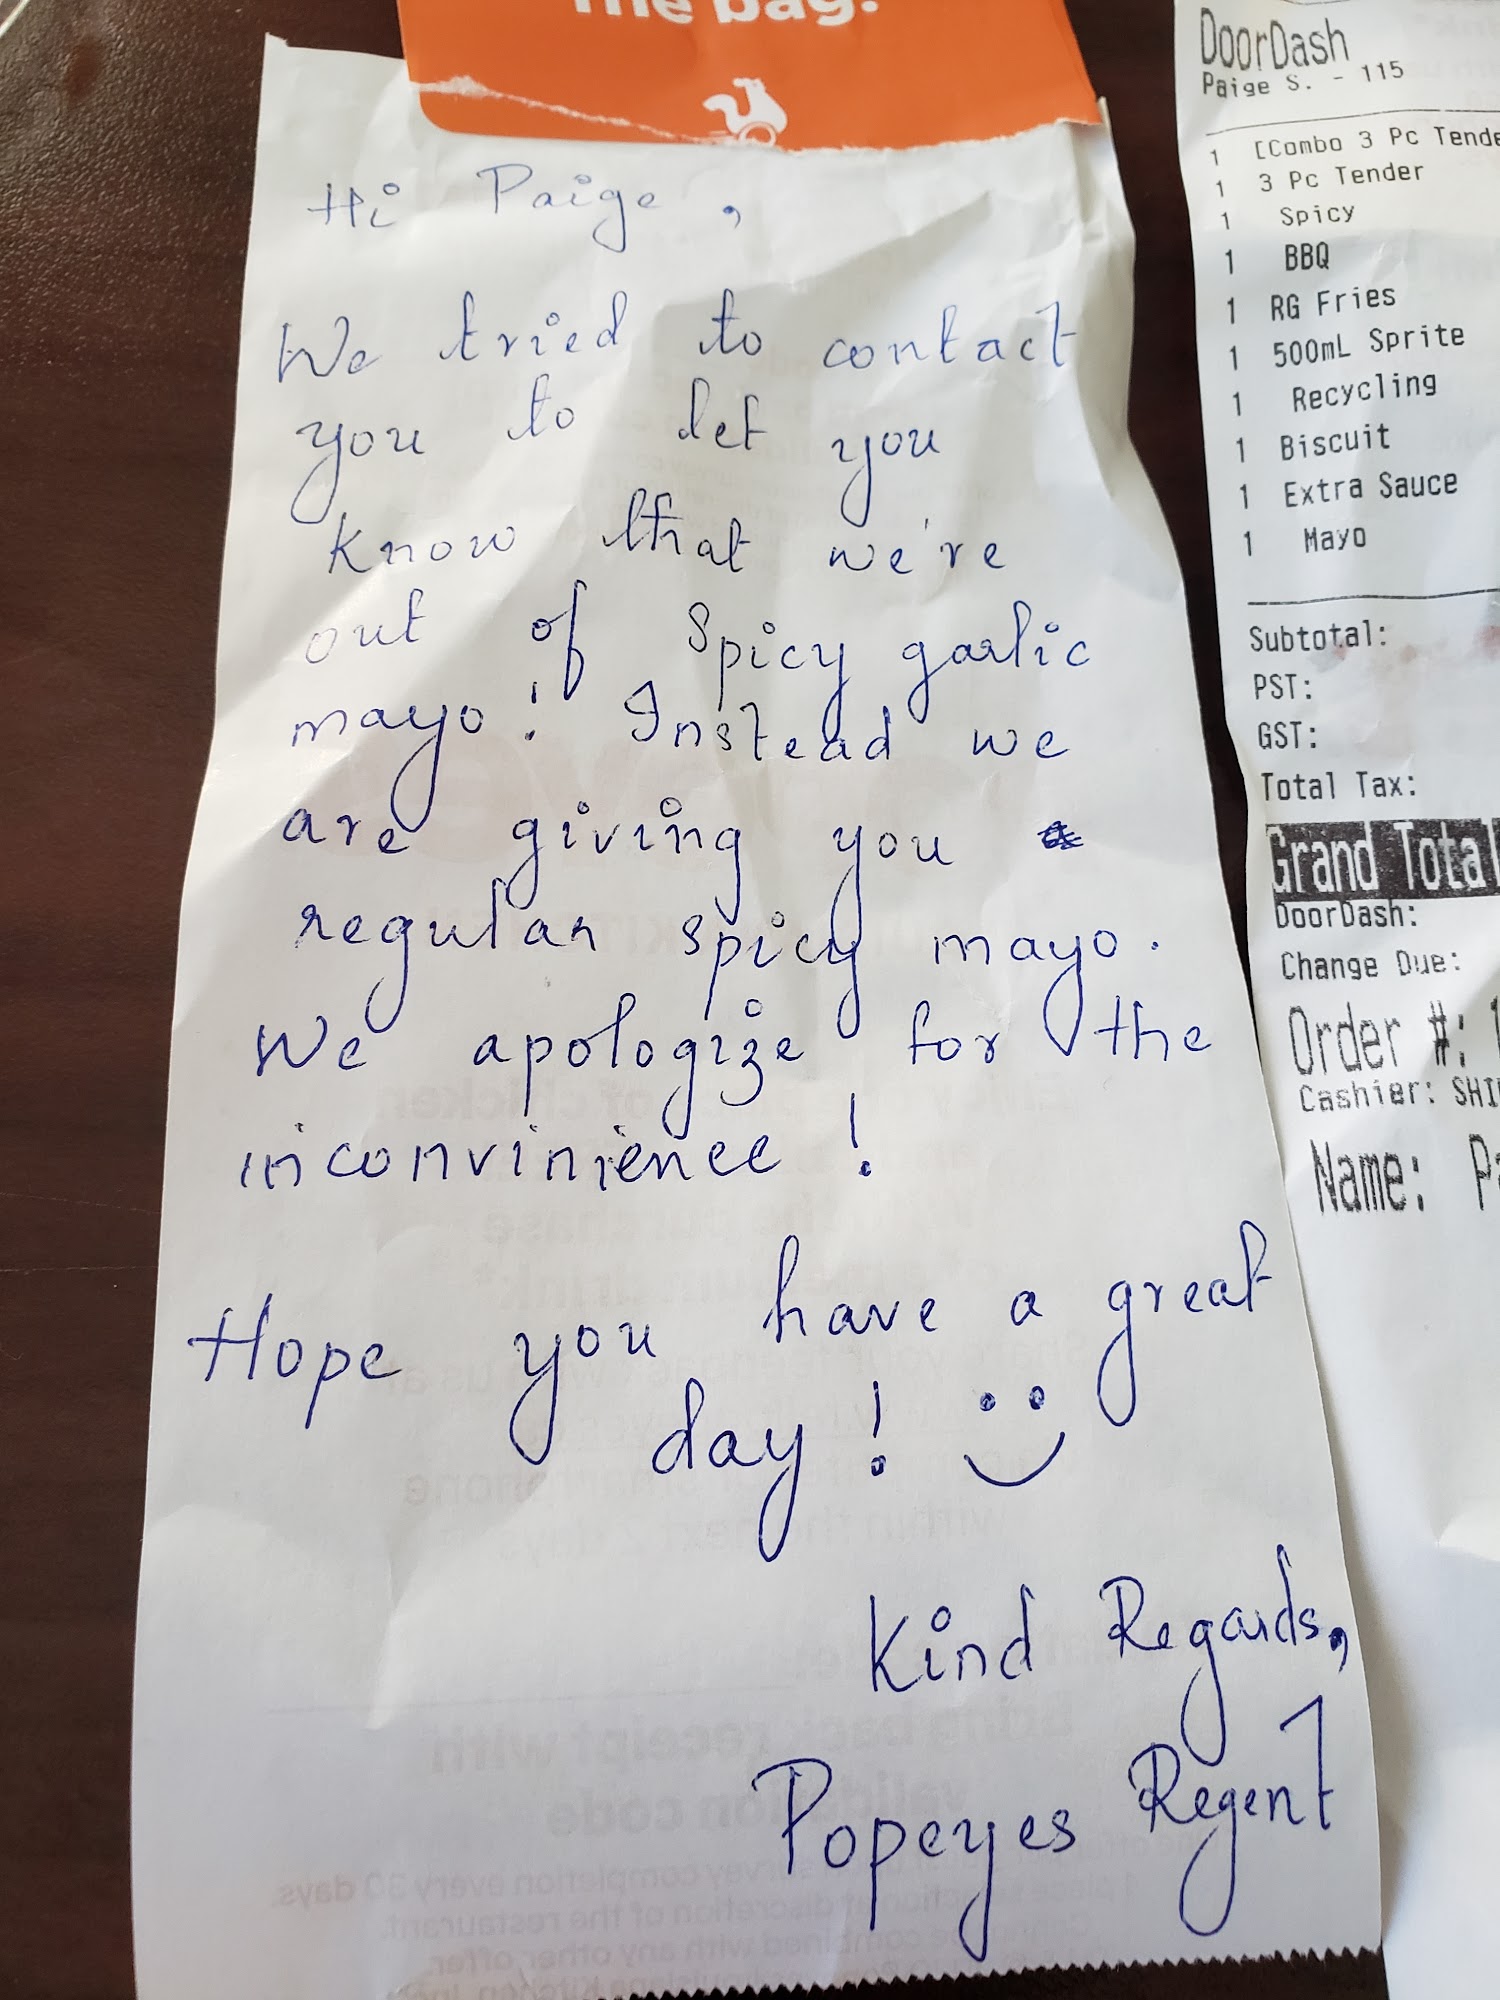 the bag.
Hi Paige,
We tried to contact
you to let you
know that we're
out of spicy garlic
mayo! Instead we
are giving you
regular spicy mayo.
We apologize for the
inconvinience!
Hope you have a great
day!
Kind Regards,
Popeyes Regent
DoorDash
Paige S. - 115
1 [Combo 3 Pc Tende
1 3 Pc Tender
1 Spicy
1 BBQ
1 RG Fries
1 500mL Sprite
1 Recycling
1 Biscuit
1 Extra Sauce
1 Mayo
Subtotal:
PST:
GST:
Total Tax:
Grand Total
DoorDash:
Change Due:
Order #: 1
Cashier: SHI
Name: Pa